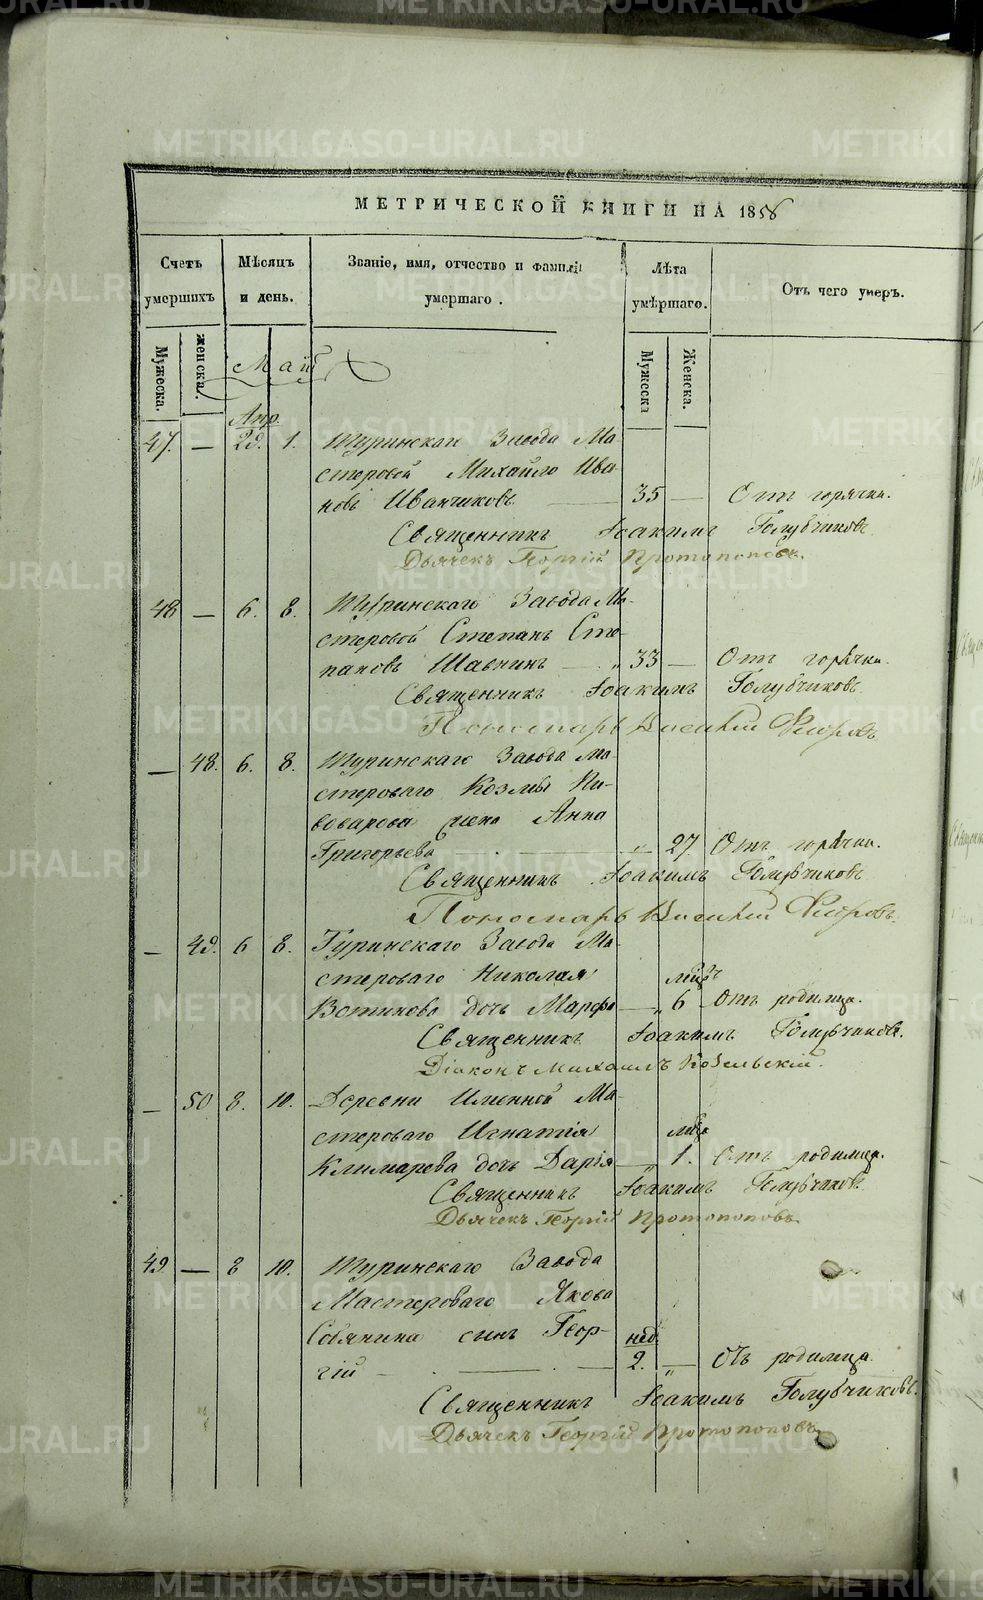 METRIKI.GASO-URAL.RU
МЕТРИЧЕСКОЙ КНИГИ НА 1858
Счетъ умершихъ
Мѣсяцъ и день.
Званіе, имя, отчество и фамилія умершаго.
Лѣта умѣршаго.
Отъ чего умеръ.
Мужеска.
женска.
Мужеска
Женска.
Май
Апр.
47. — 29. 1. Туринскаго Завода Ма-
стеровой Михайло Ива-
новъ Иванчиковъ 35 — Отъ горячки.
Священникъ Іоакимъ Голубчиковъ
Дьячекъ Георгій Протопоповъ.
48 — 6. 8. Туринскаго Завода Ма-
стеровой Степанъ Сте-
пановъ Шавнинъ — 33 — Отъ горячки.
Священникъ Іоакимъ Голубчиковъ
Пономарь Василій Флоровъ
— 48. 6. 8. Туринскаго Завода Ма-
стероваго Козмы Пи-
воварова жена Анна
Григорьева „ 27. Отъ горячки.
Священникъ Іоакимъ Голубчиковъ
Пономарь Василій Флоровъ.
— 49. 6 8. Туринскаго Завода Ма-
стероваго Николая
Вотинова дочь Марфа — „ 6 Отъ родимца.
Священникъ Іоакимъ Голубчиковъ.
Діаконъ Михаилъ
— 50 8. 10. Деревни Именной Ма-
стероваго Игнатія
Климарева дочь Дарія — „ 1. Отъ родимца.
Священникъ Іоакимъ Голубчиковъ.
Дьячекъ Георгій Протопоповъ.
49 — 8 10. Туринскаго Завода
Мастероваго Якова
Собянина сынъ Геор- нед.
гій — 2. — „ Отъ родимца.
Священникъ Іоакимъ Голубчиковъ.
Дьячекъ Георгій Протопоповъ